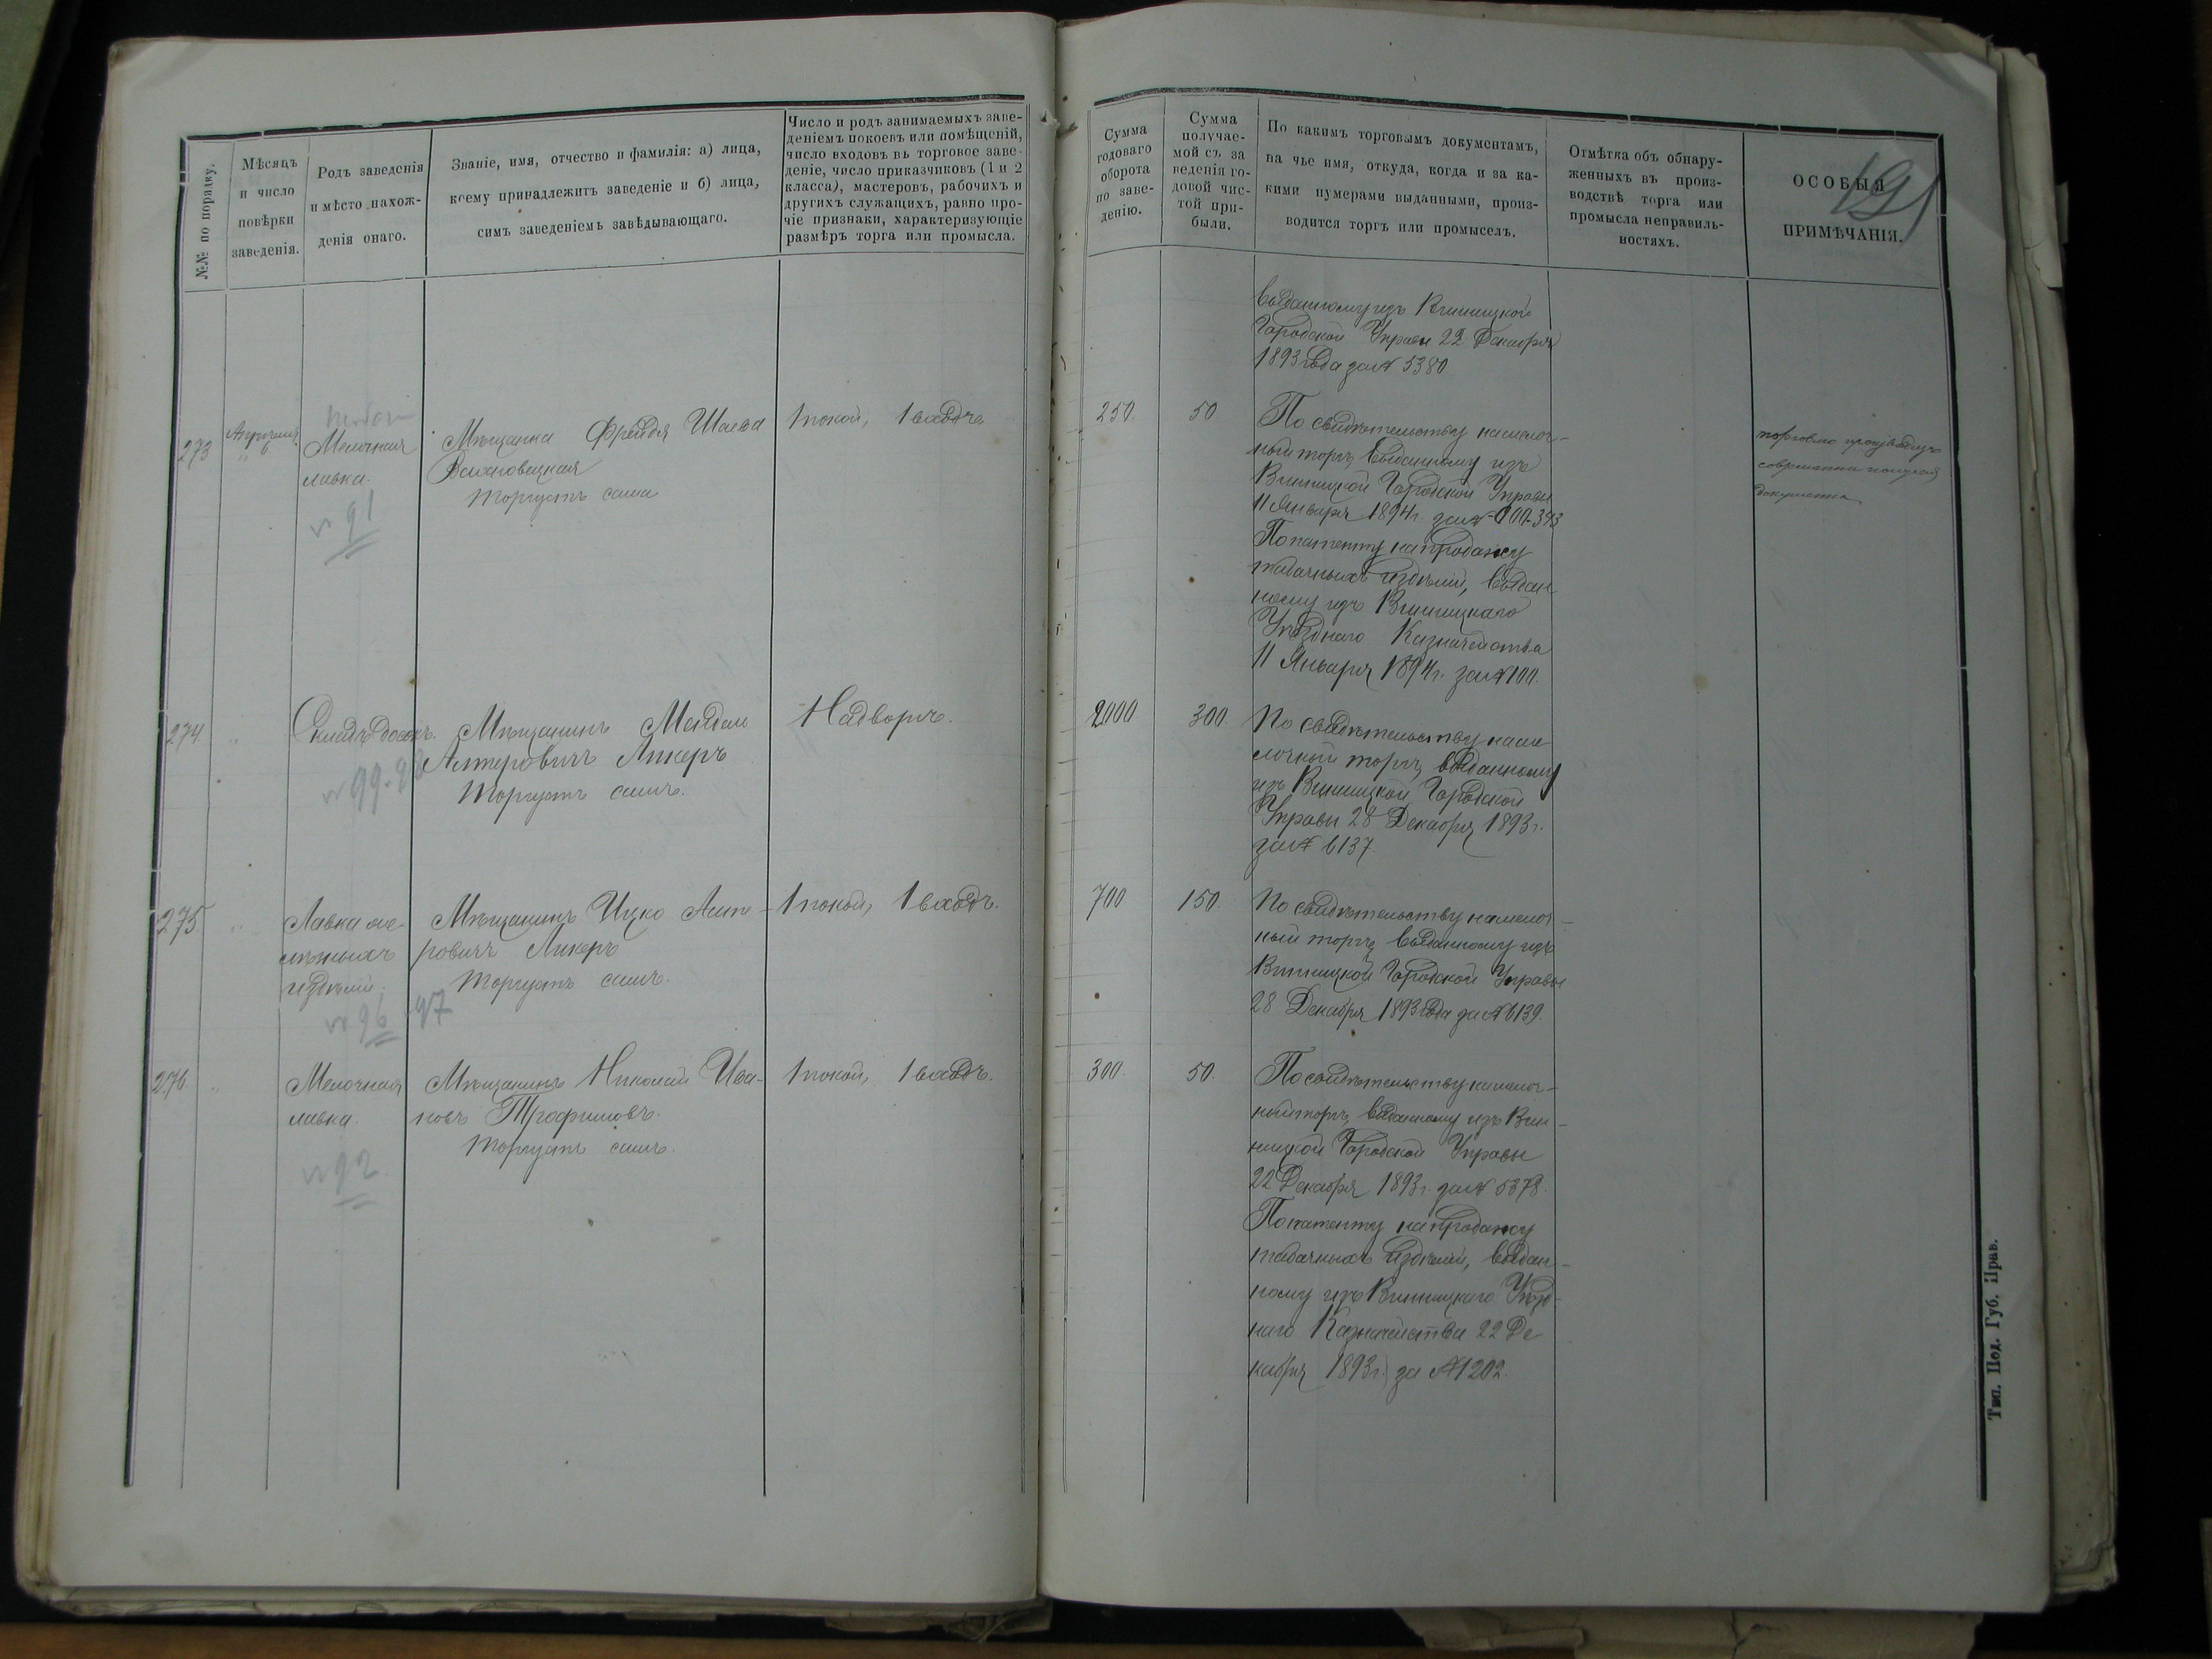 191
№№ по порядку.
Мѣсяцъ
и число
повѣрки
заведенія.
Родъ заведенія
и мѣсто нахож-
денія онаго.
Званіе, имя, отчество и фамилія: а) лица,
коему принадлежитъ заведеніе и б) лица,
симъ заведеніемъ завѣдывающаго.
Число и родъ занимаемыхъ заве-
деніемъ покоевъ или помѣщеній,
число входовъ въ торговое заве-
деніе, число приказчиковъ (1 и 2
класса), мастеровъ, рабочихъ и
другихъ служащихъ, равно про-
чіе признаки, характеризующіе
размѣръ торга или промысла.
Сумма
годоваго
оборота
по заве-
денію.
Сумма
получае-
мой съ за
веденія го-
довой чис-
той при-
были.
По какимъ торговымъ документамъ,
на чье имя, откуда, когда и за ка-
кими нумерами выданными, произ-
водится торгъ или промыселъ.
Отмѣтка объ обнару-
женныхъ въ произ-
водствѣ торга или
промысла неправиль-
ностяхъ.
ОСОБЫЯ
ПРИМѢЧАНІЯ.
выданному изъ Винницкой
Городской Управы 22 Декабря
1893 года за № 5380
273
Апрѣля
" 6
Мелочная
лавка.
№ 91
Мѣщанка Фрейдя Шаева
торгуетъ сама
1 покой, 1 входъ
250.
50
По свидѣтельству на мелоч-
ный торгъ, выданному изъ
Винницкой Городской Управы
11 Января 1894 г. за №
По патенту на продажу
табачныхъ издѣлій, выдан
ному изъ Винницкаго
Уѣзднаго Казначейства
11 Января 1894 г. за № 100.
торговлю производитъ
274.
"
Складъ досокъ.
№ 99-98
Мѣщанинъ Мендель
Астеровичъ Ликеръ
Торгуетъ самъ.
На дворѣ.
2000
300
По свидѣтельству на ме
лочной торгъ, выданному
изъ Винницкой Городской
Управы 28 Декабря 1893 г.
за № 6137.
275.
"
Лавка же-
лѣзныхъ
издѣлій.
№ 96-97
Мѣщанинъ Ицко Асте-
ровичъ Ликеръ
Торгуетъ самъ.
1 покой, 1 входъ.
700
150.
По свидѣтельству на мелоч-
ный торгъ, выданному изъ
Винницкой Городской Управы
28 Декабря 1893 года за № 6139.
276
"
Мелочная
лавка.
№ 92
Мѣщанинъ Николай Ива-
новъ Трофимовъ.
Торгуетъ самъ.
1 покой, 1 входъ.
300.
50.
По свидѣтельству на мелоч-
ный торгъ, выданному изъ Вин-
ницкой Городской Управы
22 Декабря 1893 г. за № 5378.
По патенту на продажу
табачныхъ издѣлій, выдан-
ному изъ Винницкаго Уѣзд-
наго Казначейства 22 Де
кабря 1893 г. за № 1202.
Тип. Под. Губ. Прав.